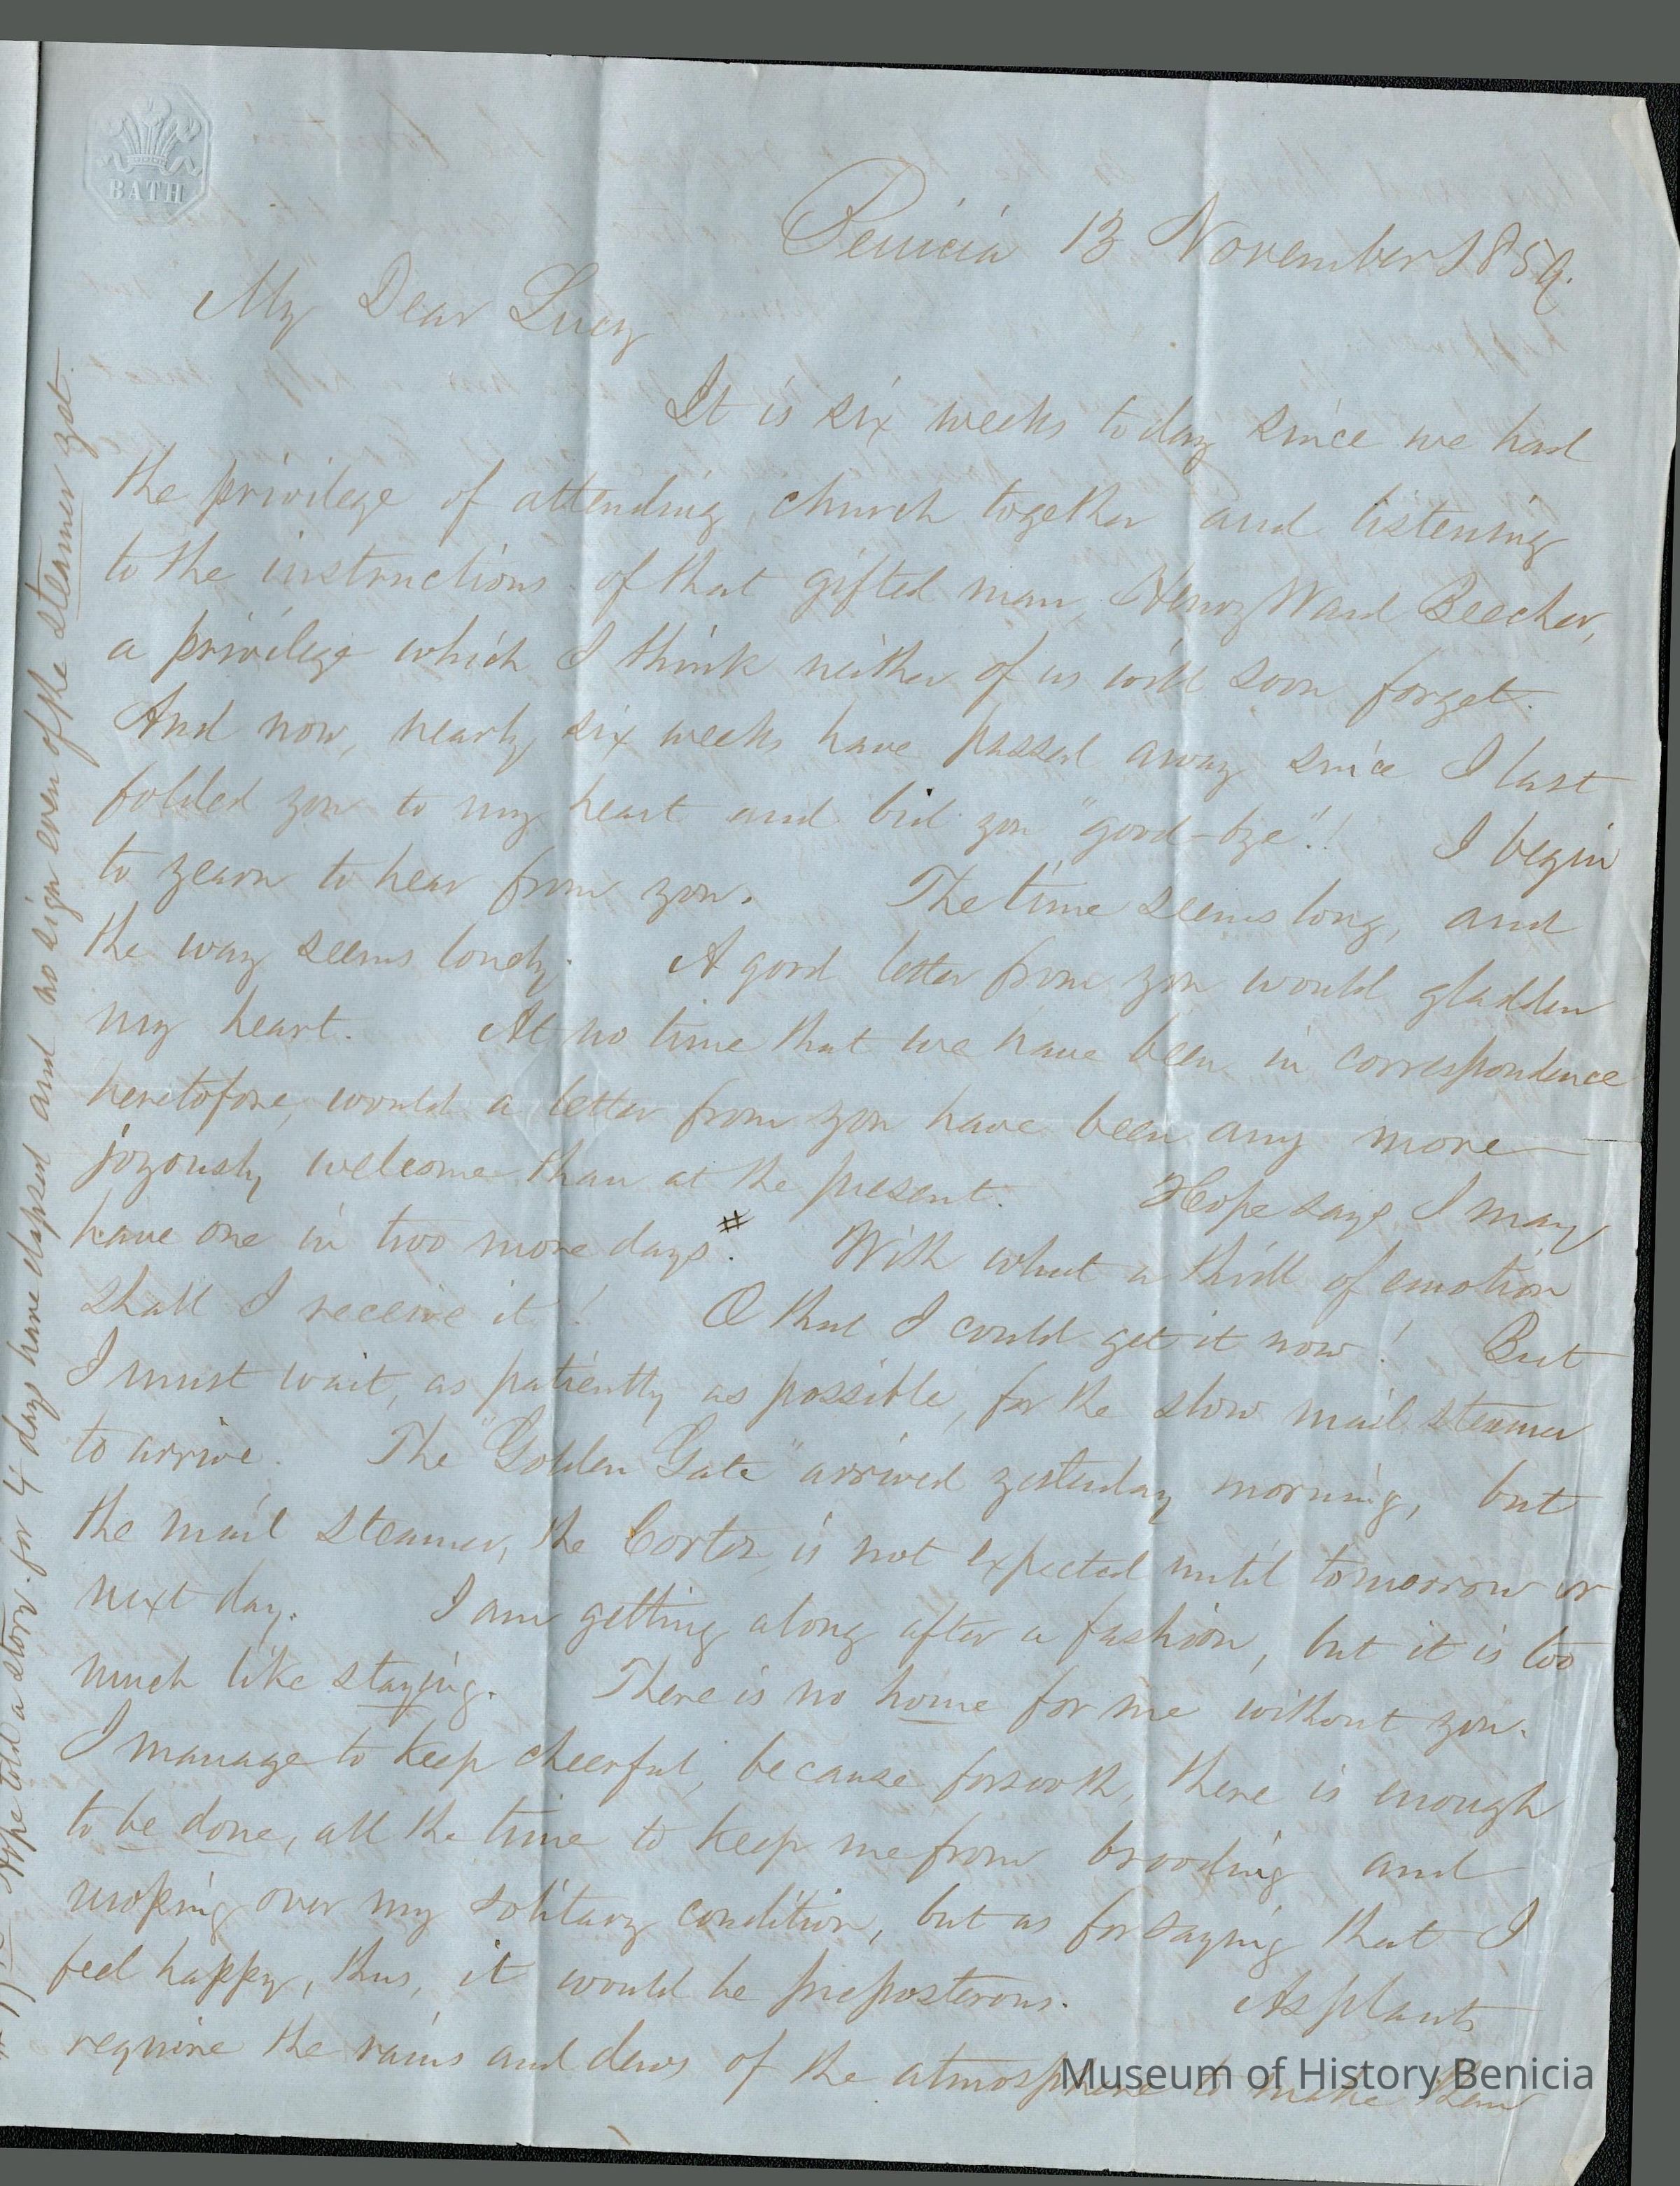 BATH
Benicia 13 November 1859.
My Dear Lucy
It is six weeks to day since we had
the privilege of attending church together and listening
to the instructions of that gifted man, Henry Ward Beecher,
a privilege which I think neither of us will soon forget.
And now, nearly six weeks have passed away since I last
folded you to my heart and bid you "good-bye"! I begin
to yearn to hear from you. The time seems long, and
the way seems lonely. A good letter from you would gladden
my heart. At no time that we have been in correspondence
heretofore, would a letter from you have been any more
joyously welcome than at the present. Hope says I may
have one in two more days.# With what a thrill of emotion
shall I receive it! O that I could get it now! But
I must wait, as patiently as possible, for the slow mail steamer
to arrive. The "Golden Gate" arrived yesterday morning, but
the mail steamer, the Cortes, is not expected until tomorrow or
next day. I am getting along after a fashion, but it is too
much like staying. There is no home for me without you.
I manage to keep cheerful, because forsooth, there is enough
to be done, all the time to keep me from brooding and
moping over my solitary condition, but as for saying that I
feel happy, thus, it would be preposterous. As plants
require the rains and dews of the atmosphere to make them
Hope told a story. for 4 days have elapsed and no sign even of the steamer yet.
Museum of History Benicia